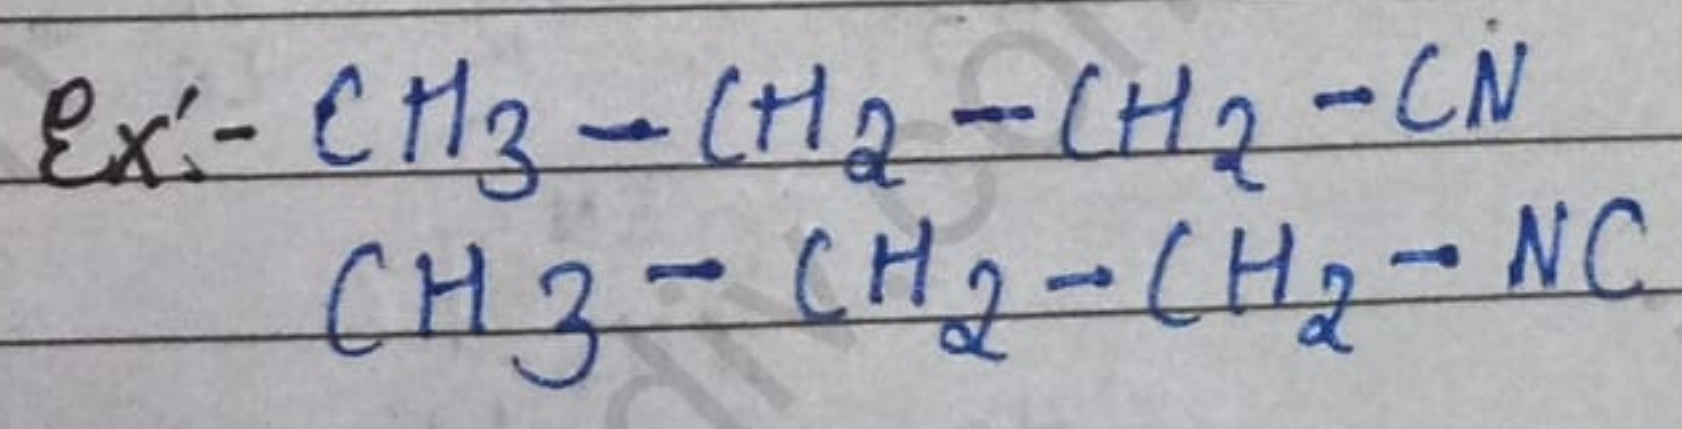 Ex:- CH3-CH2-CH2-CN
CH3-CH2-CH2-NC